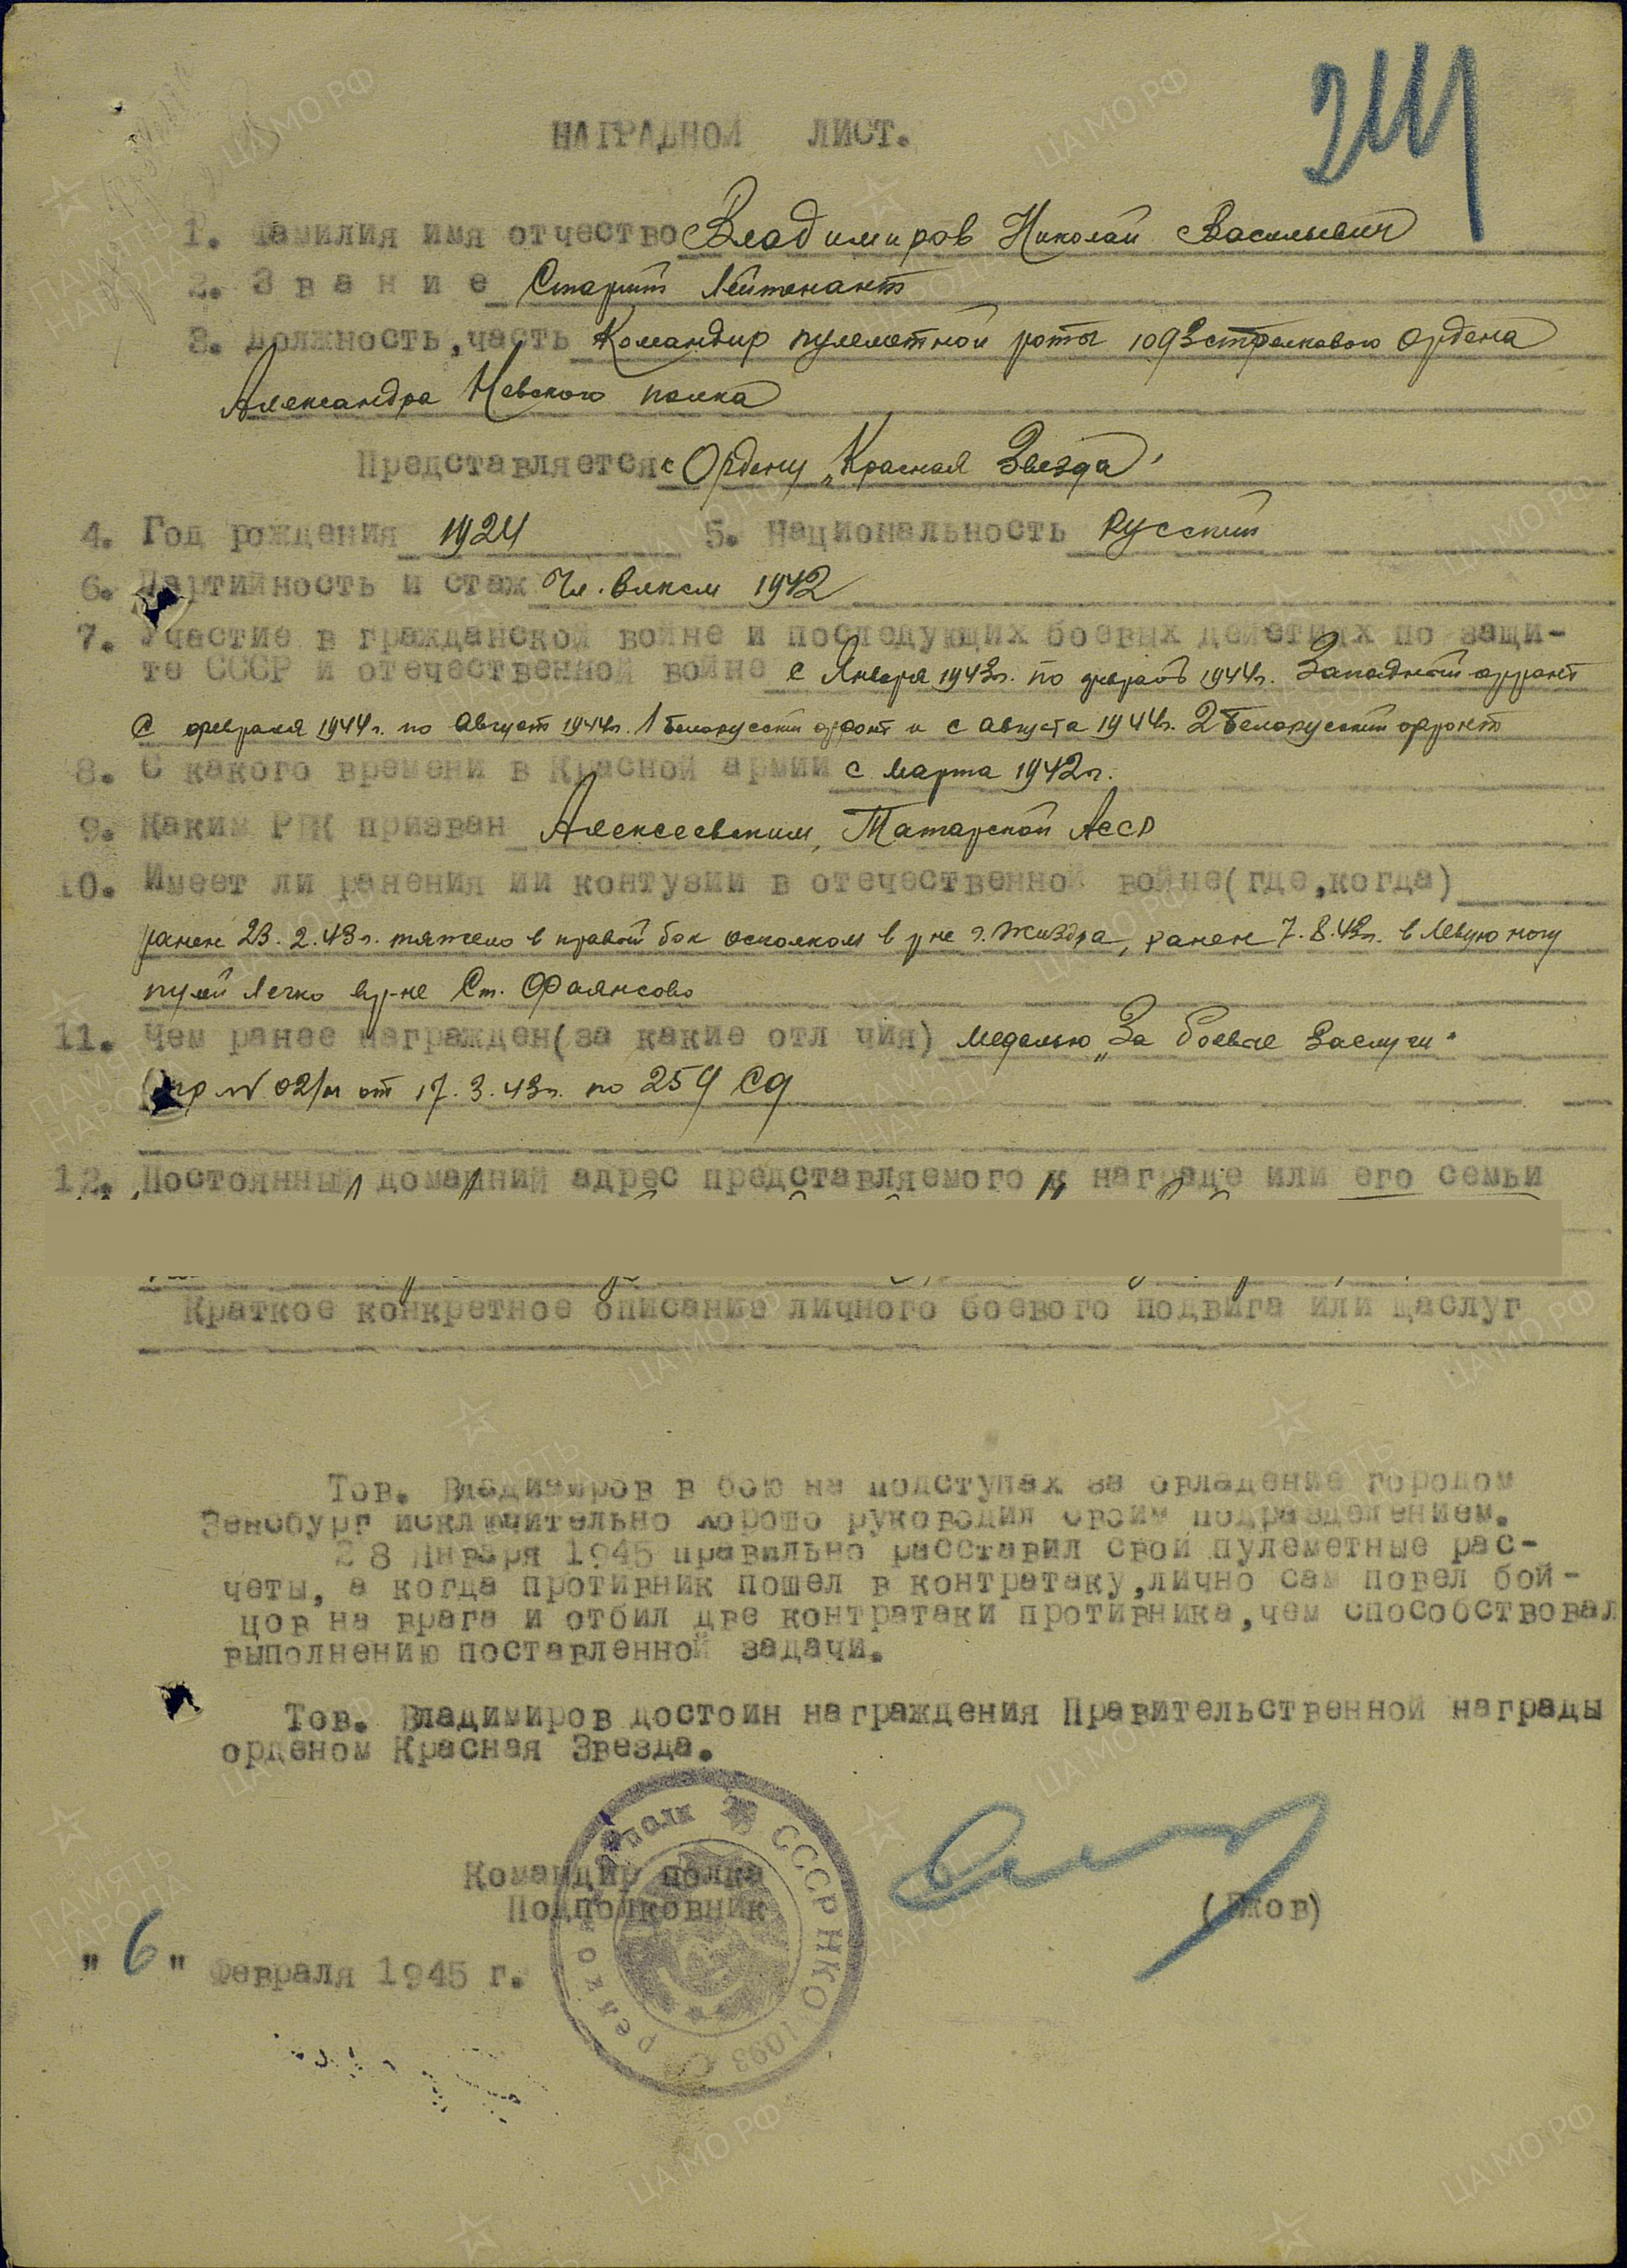 НАГРАДНОЙ ЛИСТ.
1. Фамилия имя отчество Владимиров Николай Васильевич
2. Звание Старший Лейтенант
3. Должность,часть Командир пулеметной роты 1093 стрелкового Ордена
Александра Невского полка
Представляется к Ордену „Красная Звезда"
4. Год рождения 1924 5. Национальность Русский
6. Партийность и стаж Чл. влксм 1942
7. Участие в гражданской войне и последующих боевых действиях по защи-
те СССР и отечественной войне с Января 1943г. по февраль 1944г. Западный фронт
С февраля 1944г. по Август 1944г. 1 Белорусский фронт и с августа 1944г. 2 Белорусский фронт
8. С какого времени в Красной армии с марта 1942г.
9. Каким РВК призван Алексеевским, Татарской АССР
10. Имеет ли ранения ии контузии в отечественной войне(где,когда)
ранен 23.2.43г. тяжело в правый бок осколком в р-не г. Жиздра, ранен 7.8.43г. в левую ногу
пулей легко в р-не Ст. Фаянсово
11. Чем ранее награжден(за какие отл чия) медалью „За боевые Заслуги"
пр № 02/н от 17.3.43г. по 254 Сд
12. Постоянный домашний адрес представляемого к награде или его семьи
Краткое конкретное описание личного боевого подвига или щаслуг
Тов. Владимиров в бою на подступах за овладение городом
Зенсбург исключительно хорошо руководил своим подразделением.
28 Января 1945 правильно расставил свои пулеметные рас-
четы, а когда противник пошел в контратаку,лично сам повел бой-
цов на врага и отбил две контратаки противника,чем способствовал
выполнению поставленной задачи.
Тов. Владимиров достоин награждения Правительственной награды
орденом Красная Звезда.
Командир полка
Подполковник
СССР НКО 1093 полк
"6" Февраля 1945 г.
ПАМЯТЬ НАРОДА
ЦА МО РФ